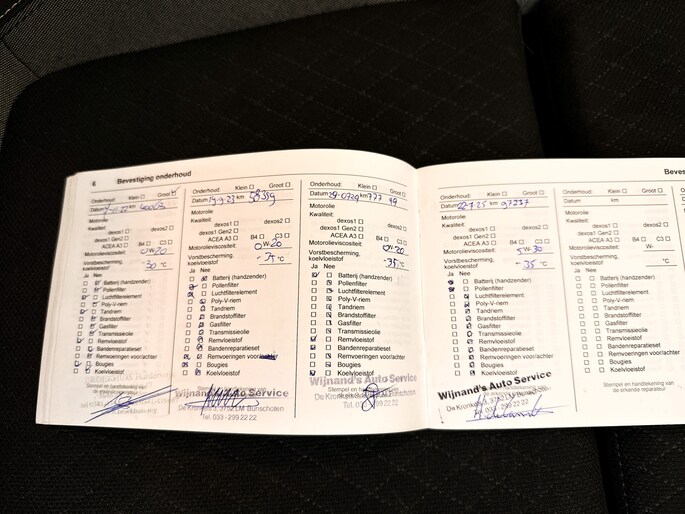 6 Bevestiging onderhoud
Onderhoud: Klein Groot
Datum km
Motorolie
Kwaliteit:
dexos1 dexos2
dexos1 Gen2
ACEA A3 B4 C3
Motorolieviscositeit: 0W-20
Vorstbescherming,
koelvloeistof -30 °C
Ja Nee
Batterij (handzender)
Pollenfilter
Luchtfilterelement
Poly-V-riem
Tandriem
Brandstoffilter
Gasfilter
Transmissieolie
Remvloeistof
Bandenreparatieset
Remvoeringen voor/achter
Bougies
Koelvloeistof
Stempel en handtekening van
de erkende reparateur
Onderhoud: Klein Groot
Datum km
Motorolie
Kwaliteit:
dexos1 dexos2
dexos1 Gen2
ACEA A3 B4 C3
Motorolieviscositeit: 0W-20
Vorstbescherming,
koelvloeistof °C
Ja Nee
Batterij (handzender)
Pollenfilter
Luchtfilterelement
Poly-V-riem
Tandriem
Brandstoffilter
Gasfilter
Transmissieolie
Remvloeistof
Bandenreparatieset
Remvoeringen voor/achter
Bougies
Koelvloeistof
Wijnand's Auto Service
De Kronkels 3, 3752 LM Bunschoten
Tel. 033 - 299 22 22
Onderhoud: Klein Groot
Datum km
Motorolie
Kwaliteit:
dexos1 dexos2
dexos1 Gen2
ACEA A3 B4 C3
Motorolieviscositeit: 0W-20
Vorstbescherming,
koelvloeistof -35 °C
Ja Nee
Batterij (handzender)
Pollenfilter
Luchtfilterelement
Poly-V-riem
Tandriem
Brandstoffilter
Gasfilter
Transmissieolie
Remvloeistof
Bandenreparatieset
Remvoeringen voor/achter
Bougies
Koelvloeistof
Wijnand's Auto Service
Stempel en
Tel. 033 - 299 22 22
Beves
Onderhoud: Klein Groot
Datum 22-7-25 km 97237
Motorolie
Kwaliteit:
dexos1 dexos2
dexos1 Gen2
ACEA A3 B4 C3
Motorolieviscositeit: 5W-30
Vorstbescherming,
koelvloeistof -35 °C
Ja Nee
Batterij (handzender)
Pollenfilter
Luchtfilterelement
Poly-V-riem
Tandriem
Brandstoffilter
Gasfilter
Transmissieolie
Remvloeistof
Bandenreparatieset
Remvoeringen voor/achter
Bougies
Koelvloeistof
Wijnand's Auto Service
De Kronkels 3, 3752 LM Bunschoten
Tel. 033 - 299 22 22
Onderhoud: Klein Groot
Datum km
Motorolie
Kwaliteit:
dexos1 dexos2
dexos1 Gen2
ACEA A3 B4 C3
Motorolieviscositeit: W-
Vorstbescherming,
koelvloeistof °C
Ja Nee
Batterij (handzender)
Pollenfilter
Luchtfilterelement
Poly-V-riem
Tandriem
Brandstoffilter
Gasfilter
Transmissieolie
Remvloeistof
Bandenreparatieset
Remvoeringen voor/achter
Bougies
Koelvloeistof
Stempel en handtekening van
de erkende reparateur